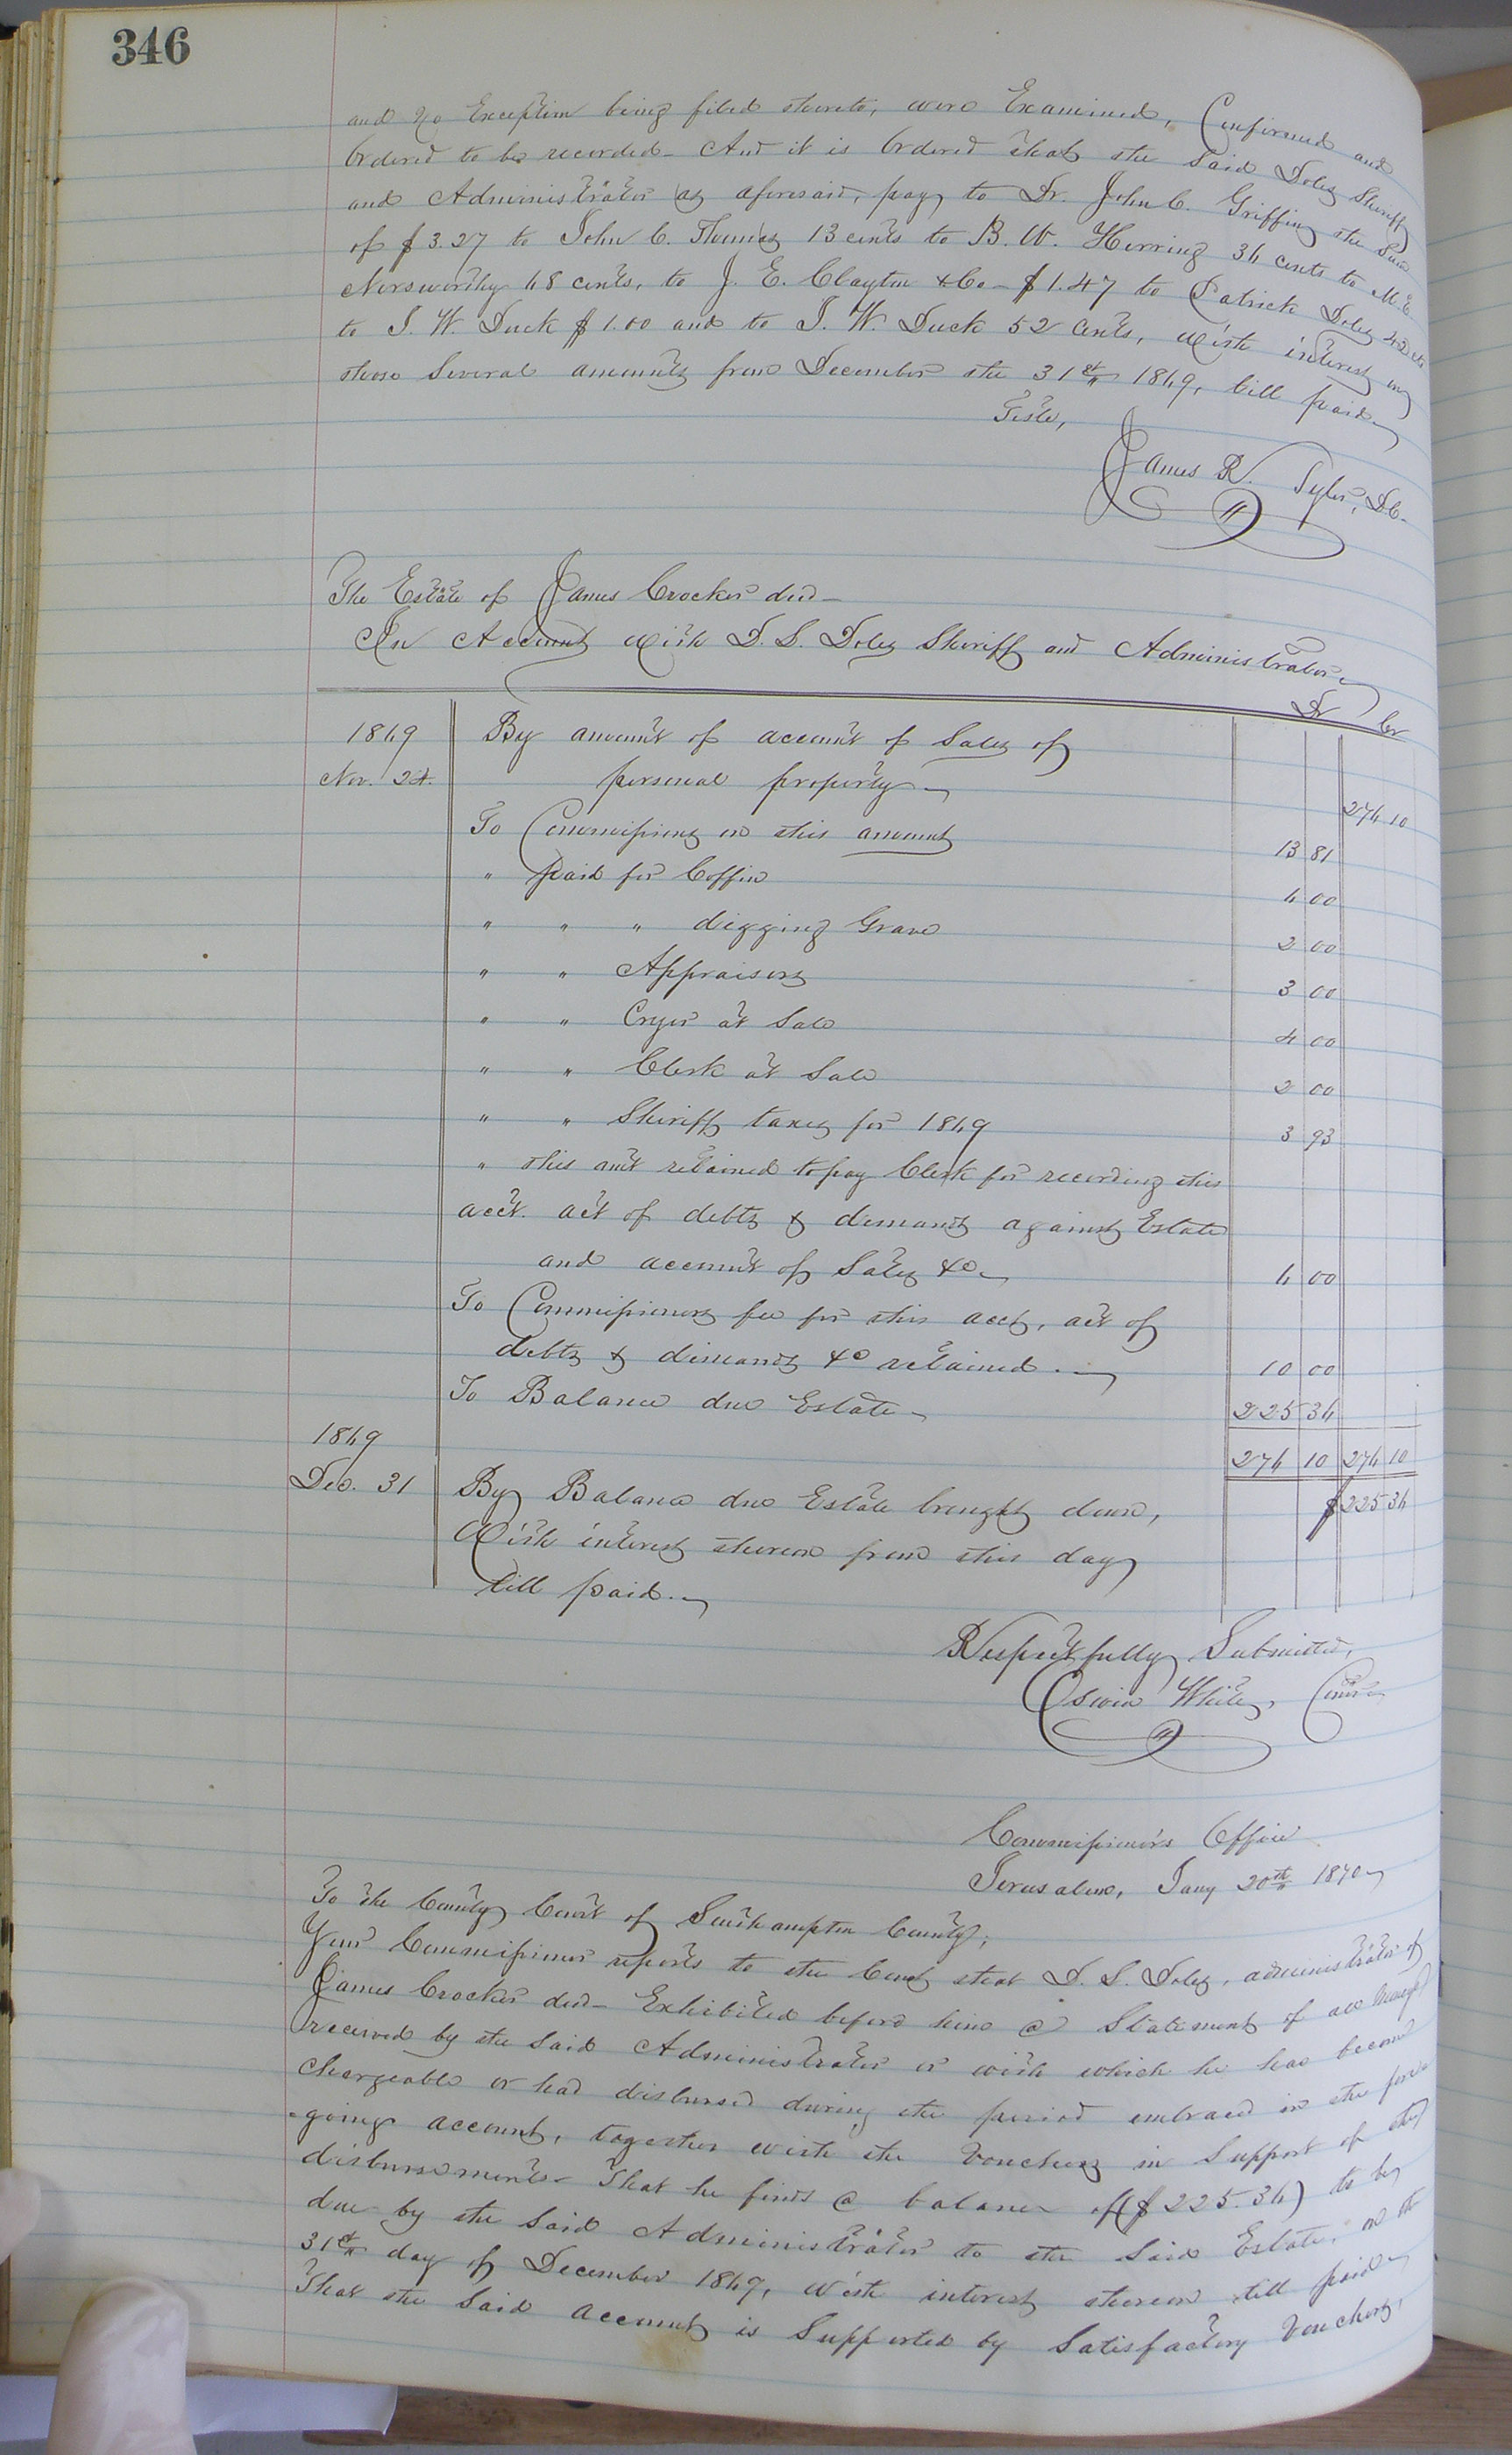 346
and no Exception being filed thereto, were Examined, Confirmed and
Ordered to be recorded - And it is Ordered that the said Doles Sheriff
and Administrator as aforesaid, pay to Dr. John C. Griffin the Sum
of $3.27 to John C. Thomas 13 cents to B. W. Herring 36 cents to M. E.
Norsworthy 68 cents, to J. E. Clayton & Co - $1.47 to Patrick Doles 42 cts
to J. W. Duck $1.00 and to J. W. Duck 52 Cents, with interest on
those Several amounts from December the 31st 1869, till paid
Teste,
James R. Tyler, D.C.
The Estate of James Crocker decd -
In Account with D. S. Doles Sheriff and Administrator
Dr Cr
1869 By amount of account of Sales of
Nov. 24. personal property 276 10
To Commissions on this amount 13 81
" paid for Coffin 6 00
" " " digging Grave 2 00
" " Appraisers 3 00
" " Cryer at Sale 4 00
" " Clerk at Sale 2 00
" " Sheriff taxes for 1869 3 93
" this amt retained to pay Clerk for recording this
acct. act of debts & demands against Estate
and account of Sales &c 6 00
To Commissioners fee for this acct, act of
debts & demands &c retained. 10 00
To Balance due Estate 225 36
1869 276 10 276 10
Dec. 31 By Balance due Estate brought down, $225 36
With interest thereon from this day
till paid.
Respectfully Submitted,
Oswin White, Comr
Commissioner's Office
Jerusalem, Jany 20th 1870
To the County Court of Southampton County;
Your Commissioner reports to the Court that D. S. Doles, administrator of
James Crocker decd - Exhibited before him a Statement of all money
received by the said Administrator or with which he has become
chargeable or had disbursed during the period embraced in the fore
-going account, together with the Vouchers in Support of the
disbursements - That he finds a balance of ($225.36) to be
due by the said Administrator to the said Estate, on the
31st day of December 1869, with interest thereon till paid
That the said account is Supported by Satisfactory Vouchers,